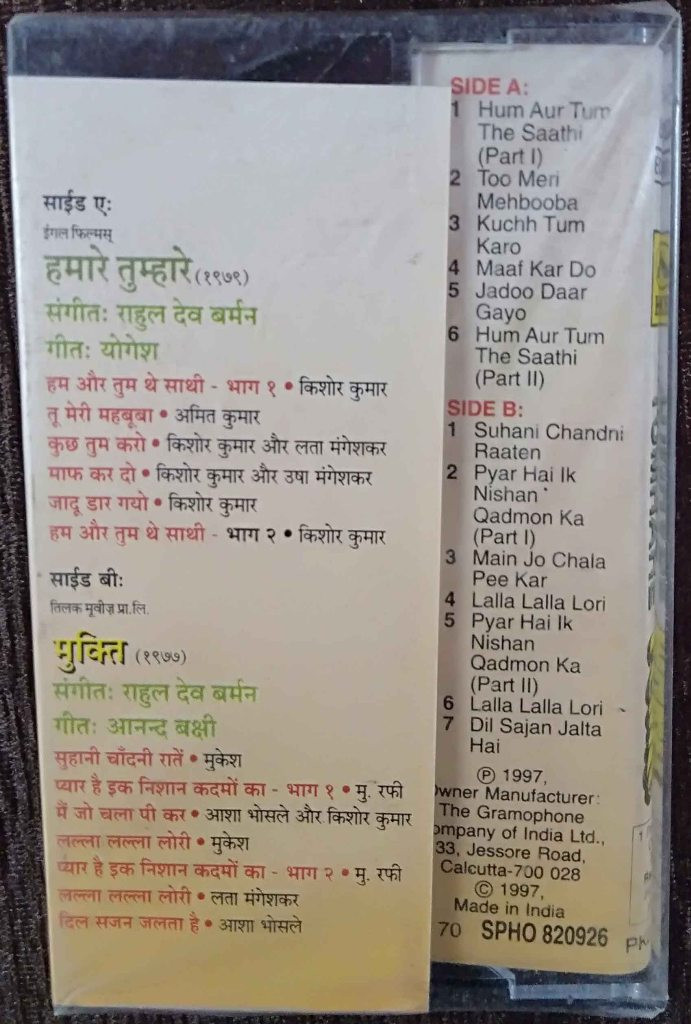 साईड ए:
ईगल फिल्मस्
हमारे तुम्हारे (१९७९)
संगीत: राहुल देव बर्मन
गीत: योगेश
हम और तुम थे साथी - भाग १ • किशोर कुमार
तू मेरी महबूबा • अमित कुमार
कुछ तुम करो • किशोर कुमार और लता मंगेशकर
माफ कर दो • किशोर कुमार और उषा मंगेशकर
जादू डार गयो • किशोर कुमार
हम और तुम थे साथी - भाग २ • किशोर कुमार
साईड बी:
तिलक मूवीज़ प्रा.लि.
मुक्ति (१९७७)
संगीत: राहुल देव बर्मन
गीत: आनन्द बक्षी
सुहानी चाँदनी रातें • मुकेश
प्यार है इक निशान कदमों का - भाग १ • मु. रफी
मैं जो चला पी कर • आशा भोसले और किशोर कुमार
लल्ला लल्ला लोरी • मुकेश
प्यार है इक निशान कदमों का - भाग २ • मु. रफी
लल्ला लल्ला लोरी • लता मंगेशकर
दिल सजन जलता है • आशा भोसले
SIDE A:
1 Hum Aur Tum
The Saathi
(Part I)
2 Too Meri
Mehbooba
3 Kuchh Tum
Karo
4 Maaf Kar Do
5 Jadoo Daar
Gayo
6 Hum Aur Tum
The Saathi
(Part II)
SIDE B:
1 Suhani Chandni
Raaten
2 Pyar Hai Ik
Nishan
Qadmon Ka
(Part I)
3 Main Jo Chala
Pee Kar
4 Lalla Lalla Lori
5 Pyar Hai Ik
Nishan
Qadmon Ka
(Part II)
6 Lalla Lalla Lori
7 Dil Sajan Jalta
Hai
℗ 1997,
Owner Manufacturer:
The Gramophone
ompany of India Ltd.,
33, Jessore Road,
Calcutta-700 028
© 1997,
Made in India
70 SPHO 820926